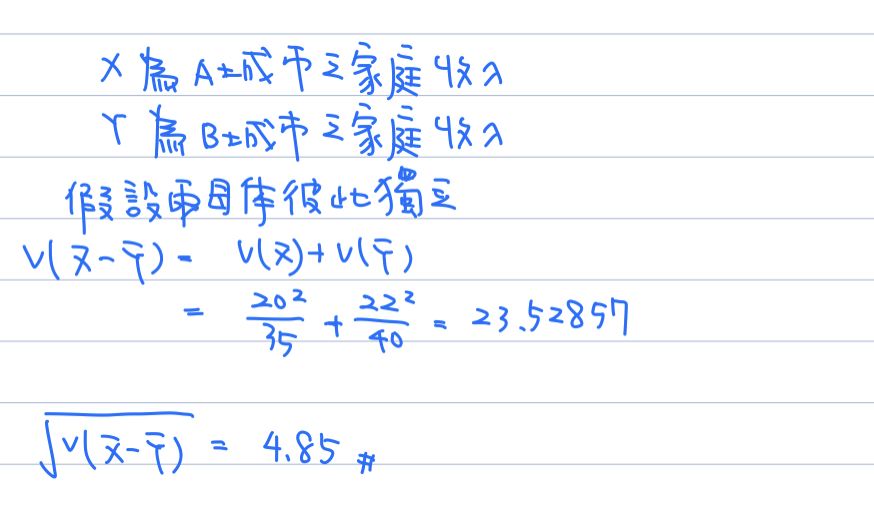 X 為 A 城市之家庭收入
Y 為 B 城市之家庭收入
假設兩母体彼此獨立
V(X̄-Ȳ) = V(X̄)+V(Ȳ)
= 20²/35 + 22²/40 = 23.52857
√V(X̄-Ȳ) = 4.85 #